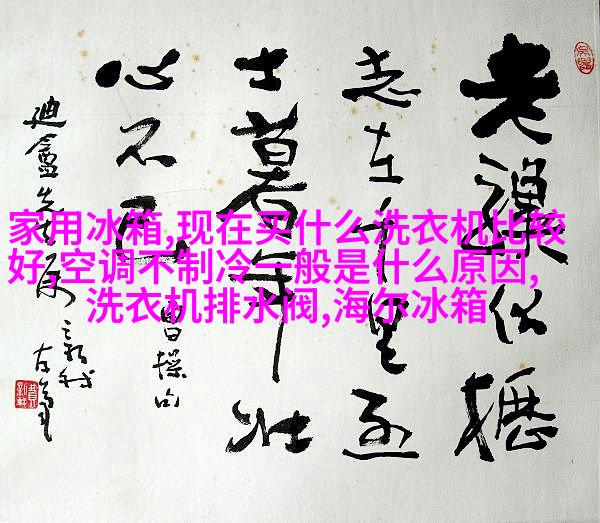 老骥伏枥
志在千里烈
士暮年壮
心不已
曹操句
迪盦先生属
家用冰箱,现在买什么洗衣机比较
好,空调不制冷一般是什么原因,
洗衣机排水阀,海尔冰箱